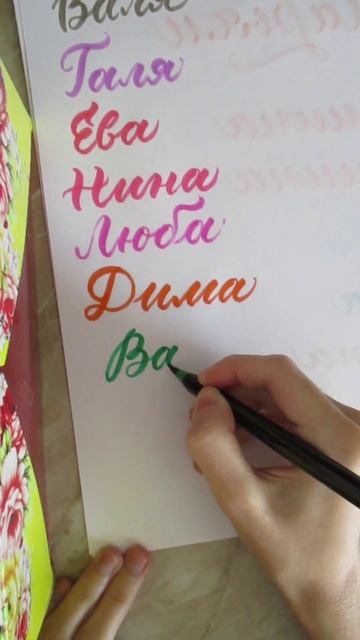 Валя
Галя
Ева
Нина
Люба
Дима
Ва